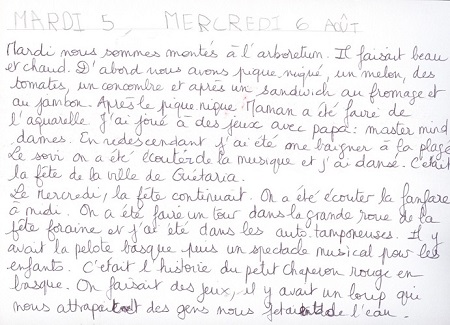 MARDI 5, MERCREDI 6 AOÛT
Mardi nous sommes montés à l'arboretum. Il faisait beau
et chaud. D'abord nous avons pique niqué, un melon, des
tomates, un concombre et après un sandwich au fromage et
au jambon. Après le pique nique Maman a été faire de
l'aquarelle J'ai joué à des jeux avec papa: master mind
dames. En redescendant j'ai été me baigner à la plage
Le soir on a été écouter de la musique et j'ai dansé. C'était
la fête de la ville de Guétaria.
Le Mercredi, la fête continuait. On a été écouter la fanfare
à midi. On a été faire un tour dans la grande roue de la
fête foraine et j'ai été dans les auto.tamponeuses. Il y
avait la pelote basque puis un spectacle musical pour les
enfants. C'était l'histoire du petit chaperon rouge en
basque. On faisait des jeux, il y avait un loup qui
nous attrapait et des gens nous jetaient de l'eau.